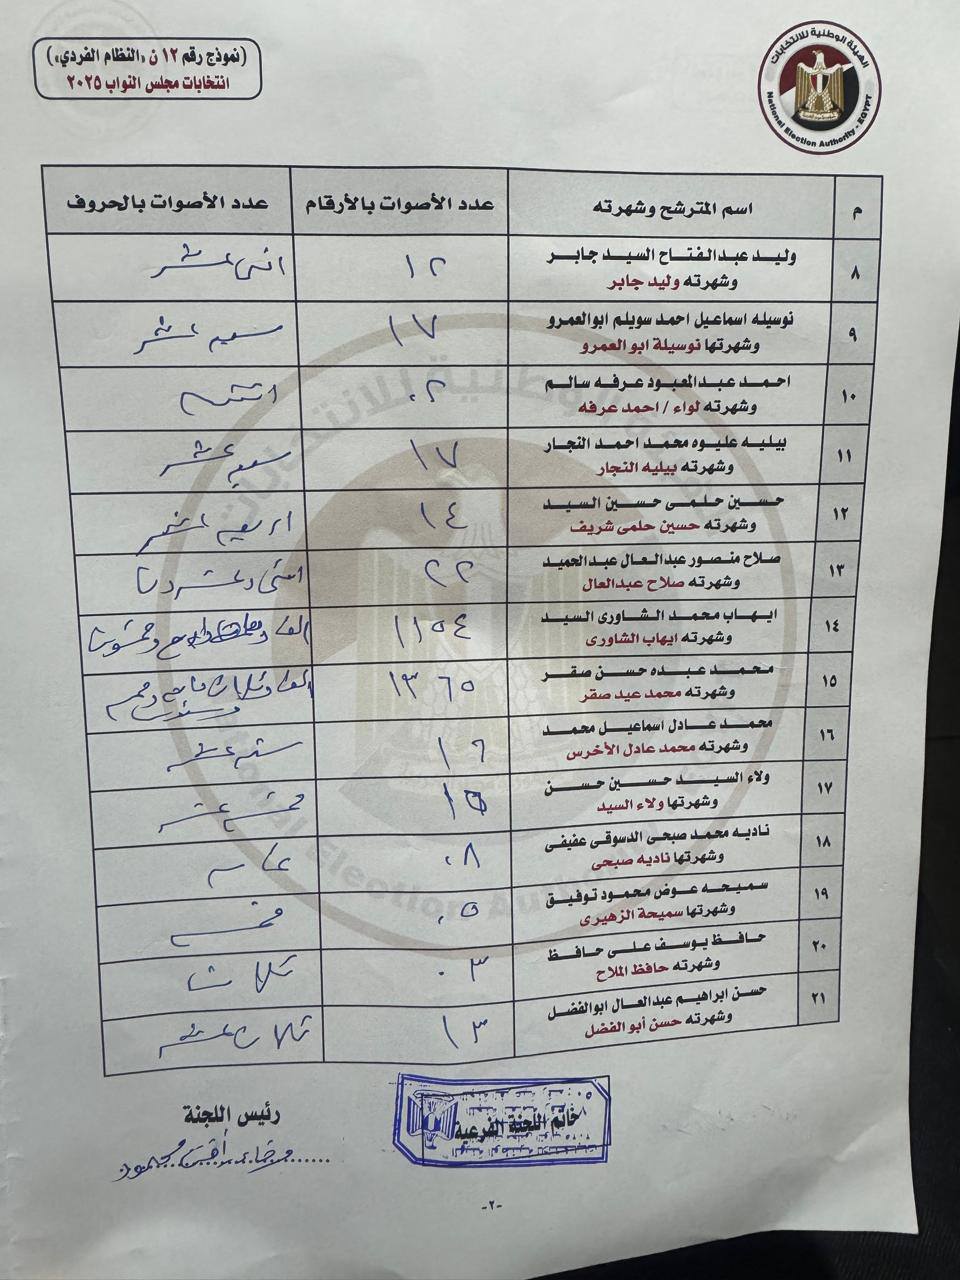 (نموذج رقم ١٢ ن «النظام الفردي»)
انتخابات مجلس النواب ٢٠٢٥
الهيئة الوطنية للانتخابات
National Election Authority - EGYPT
م اسم المترشح وشهرته عدد الأصوات بالأرقام عدد الأصوات بالحروف
٨ وليد عبدالفتاح السيد جابر ١٢ اثنى عشر
وشهرته وليد جابر
٩ نوسيله اسماعيل احمد سويلم ابوالعمرو ١٧ سبعه عشر
وشهرتها نوسيلة ابو العمرو
١٠ احمد عبدالمعبود عرفه سالم ٠٢
وشهرته لواء / احمد عرفه
١١ بيليه عليوه محمد احمد النجار ١٧ سبعه عشر
وشهرته بيليه النجار
١٢ حسين حلمى حسين السيد ١٤ اربعه عشر
وشهرته حسين حلمى شريف
١٣ صلاح منصور عبدالعال عبدالحميد ٢٢ اثنى وعشرون
وشهرته صلاح عبدالعال
١٤ ايهاب محمد الشاورى السيد ١١٥٤
وشهرته ايهاب الشاورى
١٥ محمد عبده حسن صقر ١٣٦٥
وشهرته محمد عيد صقر
١٦ محمد عادل اسماعيل محمد ١٦ سته عشر
وشهرته محمد عادل الأخرس
١٧ ولاء السيد حسين حسن ١٥ خمسة عشر
وشهرتها ولاء السيد
١٨ ناديه محمد صبحى الدسوقى عفيفى ٠٨
وشهرتها ناديه صبحى
١٩ سميحه عوض محمود توفيق ٠٥ خمسه
وشهرتها سميحة الزهيرى
٢٠ حافظ يوسف على حافظ ٠٣ ثلاث
وشهرته حافظ الملاح
٢١ حسن ابراهيم عبدالعال ابوالفضل ١٣ ثلاث عشر
وشهرته حسن أبو الفضل
خاتم اللجنة الفرعية
رئيس اللجنة
-٢-